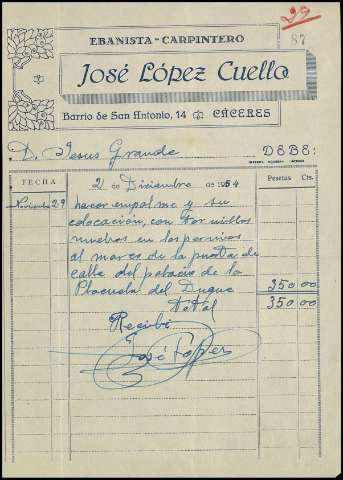 29
87
EBANISTA - CARPINTERO
José López Cuello
Barrio de San Antonio, 14 CÁCERES
D. Jesus Grande DEBE:
FECHA 2 de Diciembre de 1954 Pesetas Cts.
Noviembre 29 hacer empalme y su
colocación, con tornillos
nuevos en los pernios
al marco de la puerta de
calle del palacio de la
Plazuela del Duque 350 00
Total 350 00
Recibí
José López